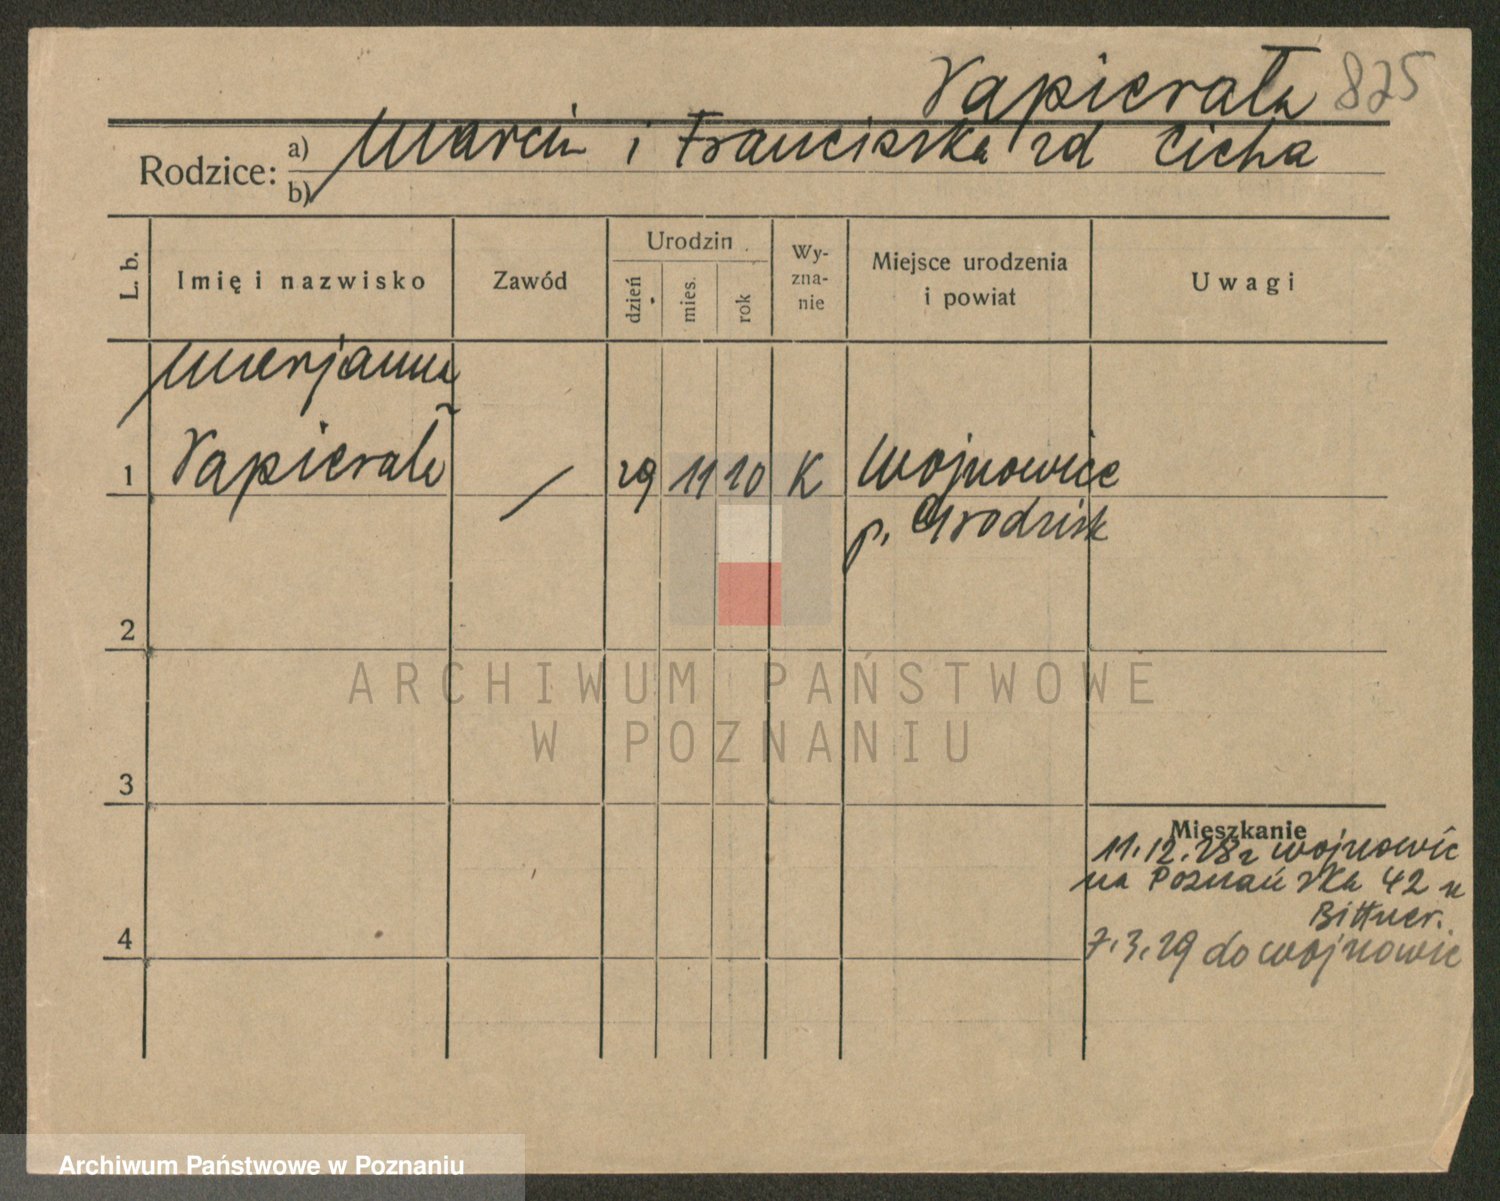 Papierała 825
Rodzice: a) Marcin i Franciszka zd Cicha
b)
L. b.
Imię i nazwisko
Zawód
Urodzin
dzień
mies.
rok
Wy-
zna-
nie
Miejsce urodzenia
i powiat
Uwagi
Marjanna
1 Papierała / 29 11 10 K Wojnowice
p. Grodzisk
2
3
4
Mieszkanie
11.12.28 z Wojnowic
na Poznańska 42 u
Bittner.
7.3.29 do Wojnowic
ARCHIWUM PAŃSTWOWE
W POZNANIU
Archiwum Państwowe w Poznaniu